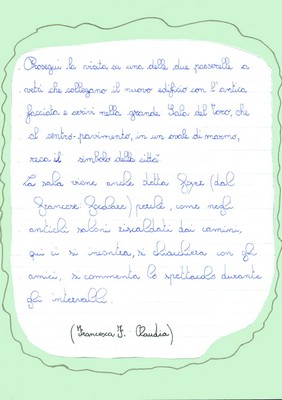 Prosegui la visita su una delle due passerelle a
vetri che collegano il nuovo edificio con l'antica
facciata e arrivi nella grande Sala del Toro, che
al centro pavimento, in un ovale di marmo,
reca il simbolo della città.
La sala viene anche detta Foyer (dal
francese: focolare) perché, come negli
antichi saloni riscaldati dai camini,
qui ci si incontra, si chiacchiera con gli
amici, si commenta lo spettacolo durante
gli intervalli.
(Francesca F. Claudia)